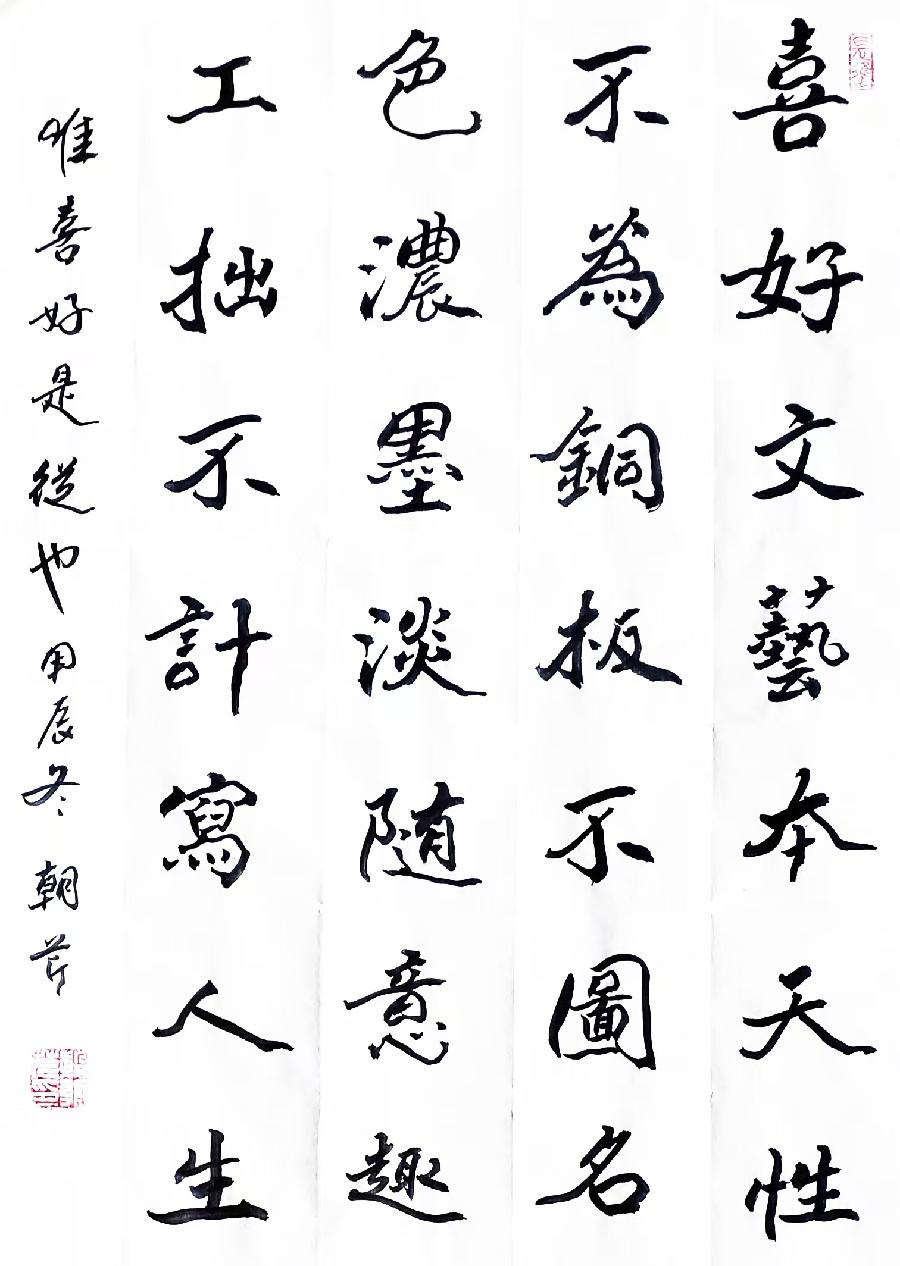 喜好文藝本天性
不為銅板不圖名
色濃墨淡随意趣
工拙不計寫人生
唯喜好是從也甲辰冬朝芹